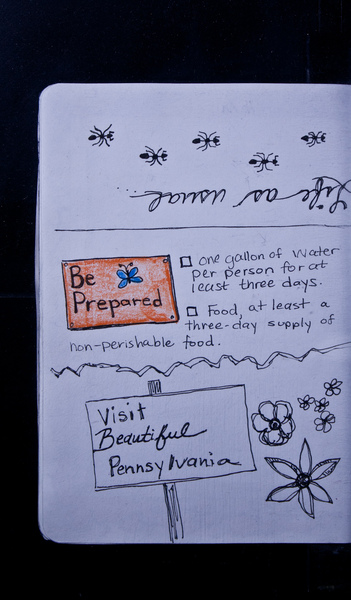 Life as usual...
Be
Prepared
one gallon of water
per person for at
least three days.
Food, at least a
three-day supply of
non-perishable food.
Visit
Beautiful
Pennsylvania